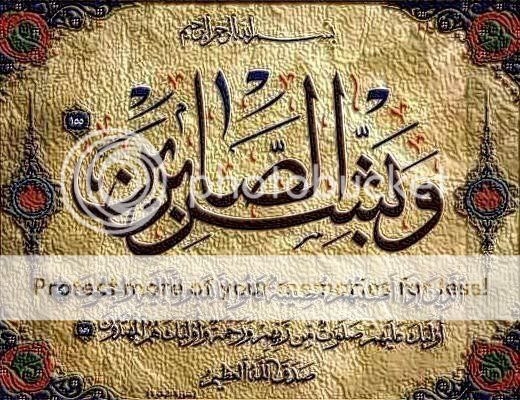 بسم الله الرحمن الرحيم
١٥٥
وَبَشِّرِ الصَّابِرِينَ
photobucket
Protect more of your memories for less!
أُولَئِكَ عَلَيْهِمْ صَلَوَاتٌ مِنْ رَبِّهِمْ وَرَحْمَةٌ وَأُولَئِكَ هُمُ الْمُهْتَدُونَ
صَدَقَ اللهُ الْعَظِيمُ